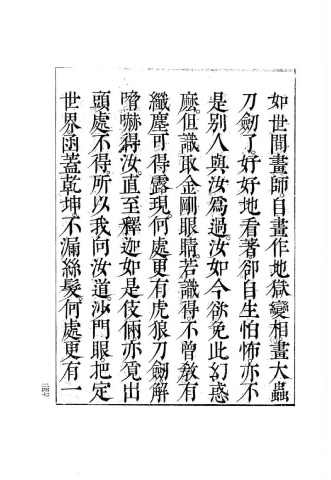 如世間畫師自畫作地獄變相畫大蟲
刀劒了好好地看著卻自生怕怖亦不
是別人與汝爲過汝如今欲免此幻惑
麽但識取金剛眼睛若識得不曾敎有
纖塵可得露現何處更有虎狼刀劒解
脅嚇得汝直至釋迦如是伎倆亦覓出
頭處不得所以我向汝道沙門眼把定
世界函蓋乾坤不漏絲髮何處更有一
二四七